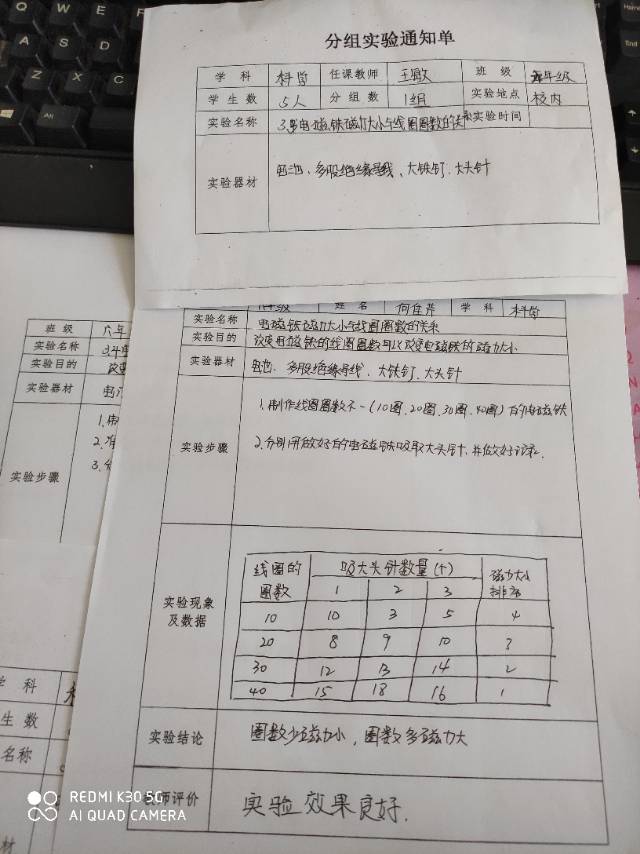 分组实验通知单
学科 科学 任课教师 王敏 班级 五年级
学生数 5人 分组数 1组 实验地点 校内
实验名称 3.电磁铁磁力大小与线圈圈数的关系 实验时间
实验器材 电池、多股绝缘导线、大铁钉、大头针
年级 姓名 何佳萍 学科 科学
实验名称 电磁铁磁力大小与线圈圈数的关系
实验目的 改变电磁铁的线圈圈数可以改变电磁铁的磁力大小
实验器材 电池、多股绝缘导线、大铁钉、大头针
实验步骤
1.制作线圈圈数不一(10圈、20圈、30圈、40圈)的电磁铁
2.分别用做好的电磁铁吸取大头针,并做好记录.
实验现象及数据
线圈的圈数 吸大头针数量(个) 磁力大小排序
1 2 3
10 10 3 5 4
20 8 9 10 3
30 12 13 14 2
40 15 18 16 1
实验结论 圈数少磁力小,圈数多磁力大
教师评价 实验效果良好.
班级 六年
实验名称
实验目的
实验器材
实验步骤
1.
2.
3.
学科
生数
名称
材
REDMI K30 5G
AI QUAD CAMERA